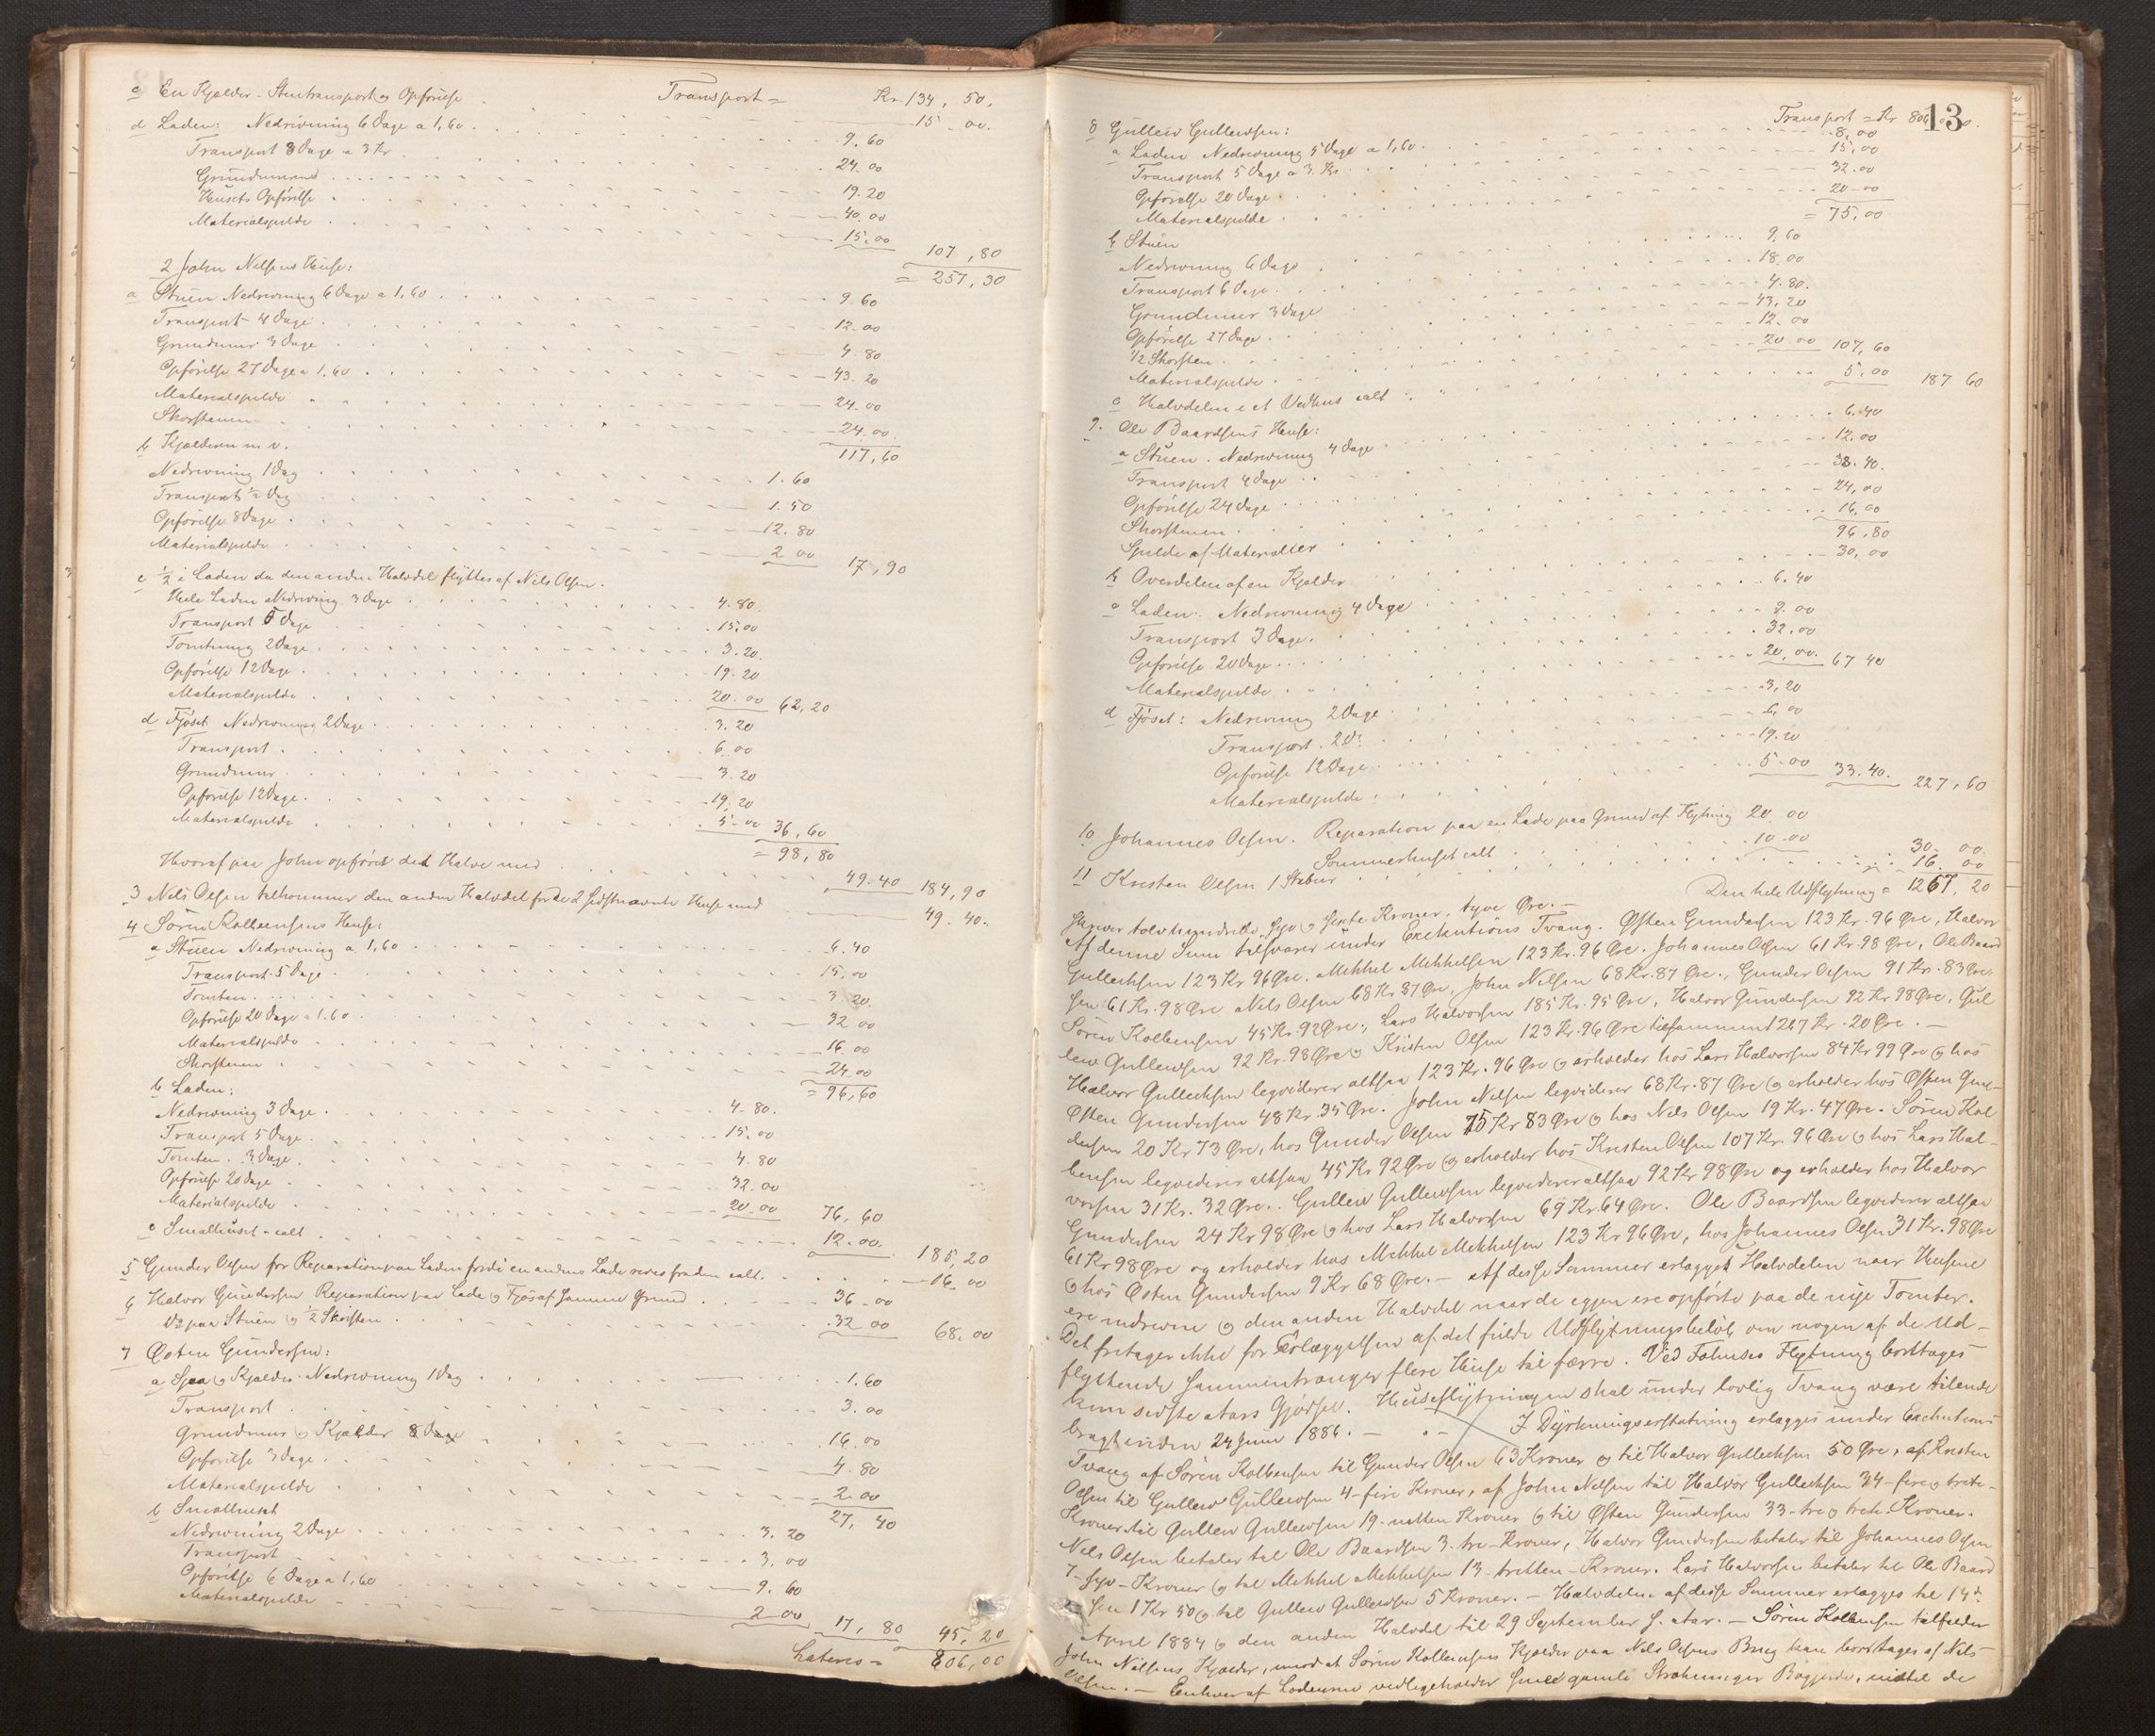 Transport = Kr 134, 50.
c En Kjelder. Stentransport og Opførelse 15.00.
d Laden: Nedrivning 6 Dage a 1,60 9.60
Transport 8 Dage a 3 Kr 24.00
Grundmuren 19.20
Husets Opførelse 40.00
Materialspilde 15.00 107,80
= 257,30
2 John Nilsens Huse:
a Stuen Nedrivning 6 Dage a 1,60 9.60
Transport 4 Dage 12.00
Grundmur 3 Dage 4.80
Opførelse 27 Dage a 1.60 43.20
Materialspilde 24.00
Skorstenen 24.00.
117,60
b Kjælderen m. v.
Nedrivning 1 Dag 1.60
Transport ½ Dag 1.50
Opførelse 8 Dage 12.80
Materialspilde 2.00 17,90
c ½ i Laden da den anden Halvdel flyttes af Nils Olsen.
Hele Laden Nedrivning 3 Dage 4.80.
Transport 5 Dage 15.00
Tomtning 2 Dage 3.20.
Opførelse 12 Dage 19.20
Materialspilde 20.00 62,20
d Fjøset Nedrivning 2 Dage 3.20
Transport 6.00
Grundmur 3.20
Opførelse 12 Dage 19.20
Materialspilde 5.00 36,60
= 98,80
Hvoraf paa John opføres det Halve med 49.40 184,90
3 Nils Olsen tilkommer den anden Halvdel for de 2 sidstnævnte Huse med 49.40.
4 Søren Kolbensens Huse:
a Stuen Nedrivning a 1,60 6.40
Transport 5 Dage 15.00
Tomten 3.20.
Opførelse 20 Dage a 1.60 32.00
Materialspilde 16.00
Skorstenen 24.00
= 96,60
b Laden:
Nedrivning 3 Dage 4.80.
Transport 5 Dage 15.00
Tomten. 3 Dage 4.80
Opførelse 20 Dage 32.00
Materialspilde 20.00 76,60
c Smalhuset ialt 12.00. 185,20
5 Gunder Olsen for Reparation paa Laden fordi en anden Lade rives fra den ialt. 16.00
6 Halvor Gundersen Reparation paa Lade og Fjøs af samme Grund 36.00
Do paa Stuen og ½ Skorsten 32.00 68.00
7 Østen Gundersen:
a og Kjelder. Nedrivning 1 Dag 1.60
Transport 3.00
Grundmur og Kjælder 8 Dage 16.00
Opførelse 3 Dage 4.80
Materialspilde 2.00
27,40
b Smalhuset
Nedrivning 2 Dage 3.20
Transport 3.00
Opførelse 6 Dage a 1,60 9.60
Materialspilde 2.00 17,80 45,20
Lateres = 806,00
13
Transport = Kr 806
8 Gullew Gullewsen:
a Laden Nedrivning 5 Dage a 1,60 8,00
Transport 5 Dage a 3 Kr. 15,00
Opførelse 20 Dage 32.00
Materialspilde 20.00
= 75,00
b Stuen
Nedrivning 6 Dage 9.60
Transport 6 Dage 18.00
Grundmur 3 Dage 4.80.
Opførelse 27 Dage 43,20
½ Skorsten 12.00
Materialspilde 20.00 107,60
c Halvdelen i et Vedhus ialt 5.00 187 60
9. Ole Baardsens Huse:
a Stuen. Nedrivning 4 Dage 6.40
Transport 4 Dage 12.00
Opførelse 24 Dage 38.40.
Skorstenen 24,00
Spilde af Materialier 16,00
96,80
b Overdelen af en Kjelder 30,00
c Laden. Nedrivning 4 Dage 6.40
Transport 3 Dage 9.00
Opførelse 20 Dage 32.00
Materialspilde 20.00. 67 40
d Fjøset: Nedrivning 2 Dage 3,20
Transport. 2 D: 6,00
Opførelse 12 Dage 19.20
Materialspilde 5.00 33.40. 227,60
10 Johannes Olsen. Reparation paa en Lade paa Grund af Flytning 20.00
Sommerhuset ialt 10.00 30.00.
11 Kristen Olsen 1 Stabur 16.00
Den hele Udflytning = 1267,20
skriver tolvhundrede, syv og sexti Kroner, tyve Øre.—
Af denne Sum tilsvarer under Exekutions Tvang. Østen Gundersen 123 Kr. 96 Øre, Halvor
Gulleksen 123 Kr 96 Øre. Mekkel Mekkelsen 123 Kr. 96 Øre. Johannes Olsen 61 Kr. 98 Øre, Ole Baard
sen 61 Kr. 98 Øre Nels Olsen 68 Kr 87 Øre, John Nilsen 68 Kr. 87 Øre, Gunder Olsen 91 Kr. 83 Øre
Søren Kolbensen 45 Kr. 92 Øre, Lars Halvorsen 185 Kr. 95 Øre, Halvor Gundersen 92 Kr 98 Øre, Gul
lew Gullewsen 92 Kr. 98 Øre og Kristen Olsen 123 Kr. 96 Øre tilsammen 1267 Kr. 20 Øre.—
Halvor Gulleksen leqviderer altsaa 123 Kr. 96 Øre og erholder hos Lars Halvorsen 84 Kr 99 Øre og hos
Østen Gundersen 48 Kr. 35 Øre. John Nelsen leqviderer 68 Kr. 87 Øre og erholder hos Østen Gun-
dersen 20 Kr 73 Øre, hos Gunder Olsen 75 Kr 83 Øre og hos Nels Olsen 19 Kr. 47 Øre. Søren Kol
bensen leqviderer altsaa 45 Kr 92 Øre og erholder hos Kresten Olsen 107 Kr. 96 Øre og hos Lars Hal-
vorsen 31 Kr. 32 Øre. Gullew Gullewsen leqviderer altsaa 92 Kr 98 Øre og erholder hos Halvor
Gundersen 24 Kr 98 Øre og hos Lars Halvorsen 69 Kr. 64 Øre. Ole Baardsen leqviderer altsaa
61 Kr 98 Øre og erholder hos Mekkel Mekkelsen 123 Kr 96 Øre, hos Johannes Olsen 31 Kr. 98 Øre
og hos Østen Gundersen 9 Kr 68 Øre.— Af disse Summer erlægges Halvdelen naar Husene
ere nedrevne og den anden Halvdel naar de igjen ere opførte paa de nye Tomter.
Det fritager ikke for Erlæggelsen af det fulde Udflytningsbeløb om nogen af de Ud-
flyttende sammentrænger flere Huse til færre. Ved Fæhuses Flytning borttages
kun sidste Aars Gjødsel. Husflytningen skal under lovlig Tvang være tilende
bragt inden 24 Juni 1886.— I Dyrkningserstatning erlægges under Exekutions
Tvang af Søren Kolbensen til Gunder Olsen 63 Kroner og til Halvor Gulleksen 50 Øre, af Kresten
Olsen til Gullew Gullewsen 4 - fire Kroner, af John Nelsen til Halvor Gulleksen 34 - fire og treti-
Kroner, til Gullew Gullewsen 19 - nitten Kroner og til Østen Gundersen 33 - tre og treti Kroner.
Nels Olsen betaler til Ole Baardsen 3 - tre - Kroner, Halvor Gundersen betaler til Johannes Olsen
7 - syv - Kroner og til Mekkel Mekkelsen 13 - tretten - Kroner. Lars Halvorsen betaler til Ole Baard
sen 1 Kr 50 og til Gullew Gullewsen 5 Kroner.— Halvdelen af disse Summer erlægges til 14de
April 1884 og den anden Halvdel til 29 September s. Aar.— Søren Kolbensen tilfalder
John Nilsens Kjælder, imod at Søren Kolbensens Kjælder paa Nels Olsens Brug kan borttages af Nels
Olsen.— Enhver af Lodeierne vedligeholder sine gamle Strækninger Bøgjerde, indtil de